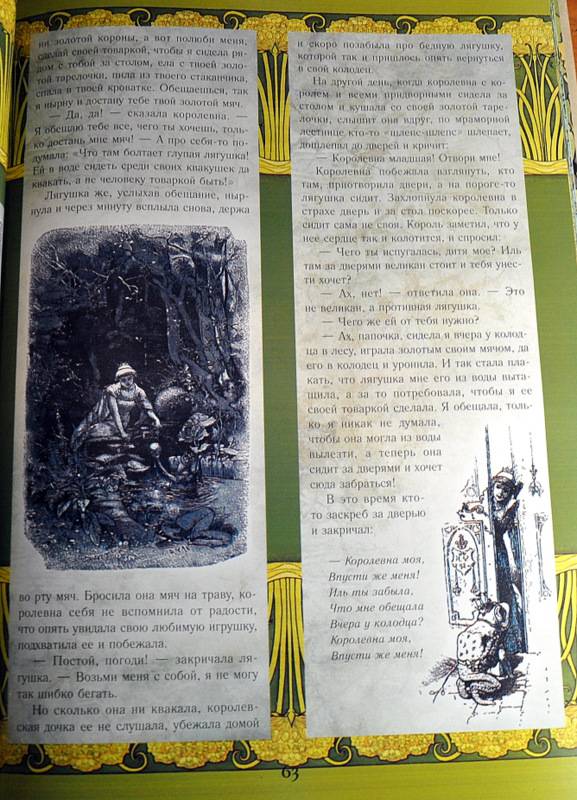 ни золотой короны, а вот полюби меня,
сделай своей товаркой, чтобы я сидела ря-
дом с тобой за столом, ела с твоей золо-
той тарелочки, пила из твоего стаканчика,
спала в твоей кроватке. Обещаешься, так
я нырну и достану тебе твой золотой мяч.
— Да, да! — сказала королевна. —
Я обещаю тебе все, чего ты хочешь, толь-
ко достань мне мяч! — А про себя-то по-
думала: «Что там болтает глупая лягушка!
Ей в воде сидеть среди своих квакушек да
квакать, а не человеку товаркой быть!»
Лягушка же, услыхав обещание, ныр-
нула и через минуту всплыла снова, держа
во рту мяч. Бросила она мяч на траву, ко-
ролевна себя не вспомнила от радости,
что опять увидала свою любимую игрушку,
подхватила ее и побежала.
— Постой, погоди! — закричала ля-
гушка. — Возьми меня с собой, я не могу
так шибко бегать.
Но сколько она ни квакала, королев-
ская дочка ее не слушала, убежала домой
и скоро позабыла про бедную лягушку,
которой так и пришлось опять вернуться
в свой колодец.
На другой день, когда королевна с ко-
ролем и всеми придворными сидела за
столом и кушала со своей золотой таре-
лочки, слышит они вдруг, по мраморной
лестнице кто-то «шлепс-шлепс» шлепает,
дошлепал до дверей и кричит:
— Королевна младшая! Отвори мне!
Королевна побежала взглянуть, кто
там, приотворила двери, а на пороге-то
лягушка сидит. Захлопнула королевна в
страхе дверь и за стол поскорее. Только
сидит сама не своя. Король заметил, что у
нее сердце так и колотится, и спросил:
— Чего ты испугалась, дитя мое? Иль
там за дверями великан стоит и тебя унес-
ти хочет?
— Ах, нет! — ответила она. — Это
не великан, а противная лягушка.
— Чего же ей от тебя нужно?
— Ах, папочка, сидела я вчера у колод-
ца в лесу, играла золотым своим мячом, да
его в колодец и уронила. И так стала пла-
кать, что лягушка мне его из воды выта-
щила, а за то потребовала, чтобы я ее
своей товаркой сделала. Я обещала, толь-
ко я никак не думала,
чтобы она могла из воды
вылезти, а теперь она
сидит за дверями и хочет
сюда забраться!
В это время кто-
то заскреб за дверью
и закричал:
— Королевна моя,
Впусти же меня!
Иль ты забыла,
Что мне обещала
Вчера у колодца?
Королевна моя,
Впусти же меня!
63